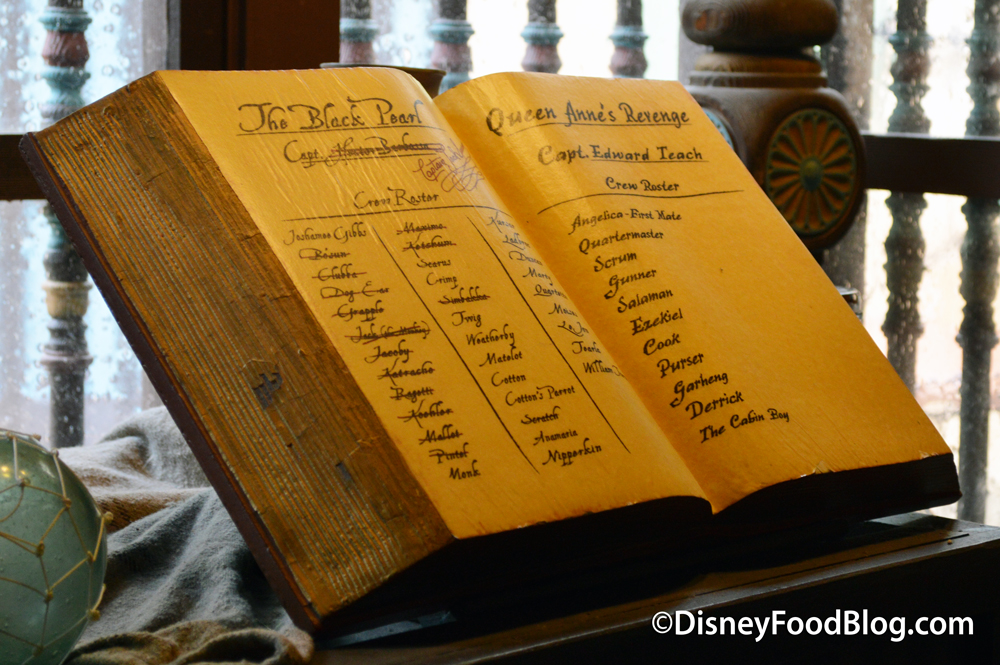 The Black Pearl
Capt. Hector Barbossa
Captain
Crew Roster
Joshamee Gibbs
Bosun
Clubba
Dog Ear
Grapple
Jacoby
Katracho
Ragetti
Koehler
Mallot
Pintel
Monk
Maximo
Ketchum
Scarus
Crimp
Simbakka
Twig
Weatherby
Matelot
Cotton
Cotton's Parrot
Scratch
Anamaria
Nipperkin
Queen Anne's Revenge
Capt. Edward Teach
Crew Roster
Angelica - First Mate
Quartermaster
Scrum
Gunner
Salaman
Ezekiel
Cook
Purser
Garheng
Derrick
The Cabin Boy
©DisneyFoodBlog.com